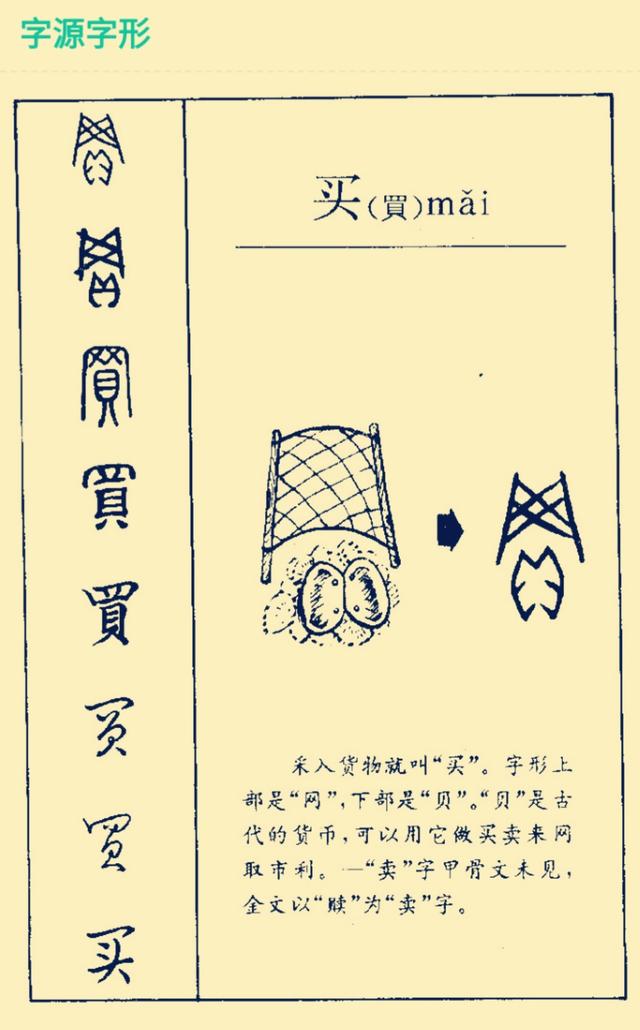 字源字形
买(買)mǎi
采入货物就叫“买”。字形上
部是“网”,下部是“贝”。“贝”是古
代的货币,可以用它做买卖来网
取市利。—“卖”字甲骨文未见,
金文以“赎”为“卖”字。
買
買
買
买